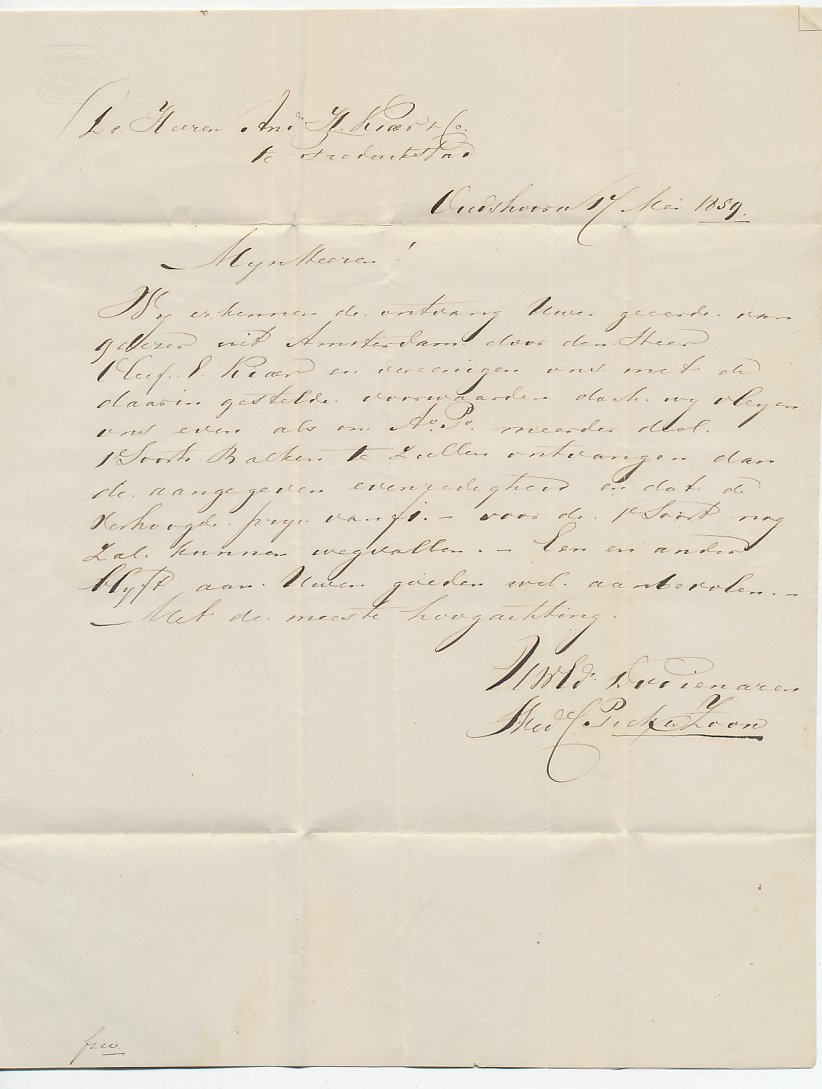 De Heeren And. H. Kiær & Co.
te Fredrikstad
Oudshoorn 17 Mei 1859.
Myn Heeren!
Wy erkennen de ontvang Uwer geeerde van
uit Amsterdam door den Heer
E. Kiær en vereenigen ons met de
daarin gestelde voorwaarden doch wy vleyen
ons even als in Ao. Po. meerder deel
1e Soort Balken te zullen ontvangen dan
de aangegeven evenredigheid en dat de
verhoogde prys van f1.- voor de 1e Soort nog
zal kunnen wegvallen. - Een en ander
blyft aan Uwen goeden wil aanbevolen. -
Met de meeste hoogachting.
UWEd. Dw Dienaren
Zoon